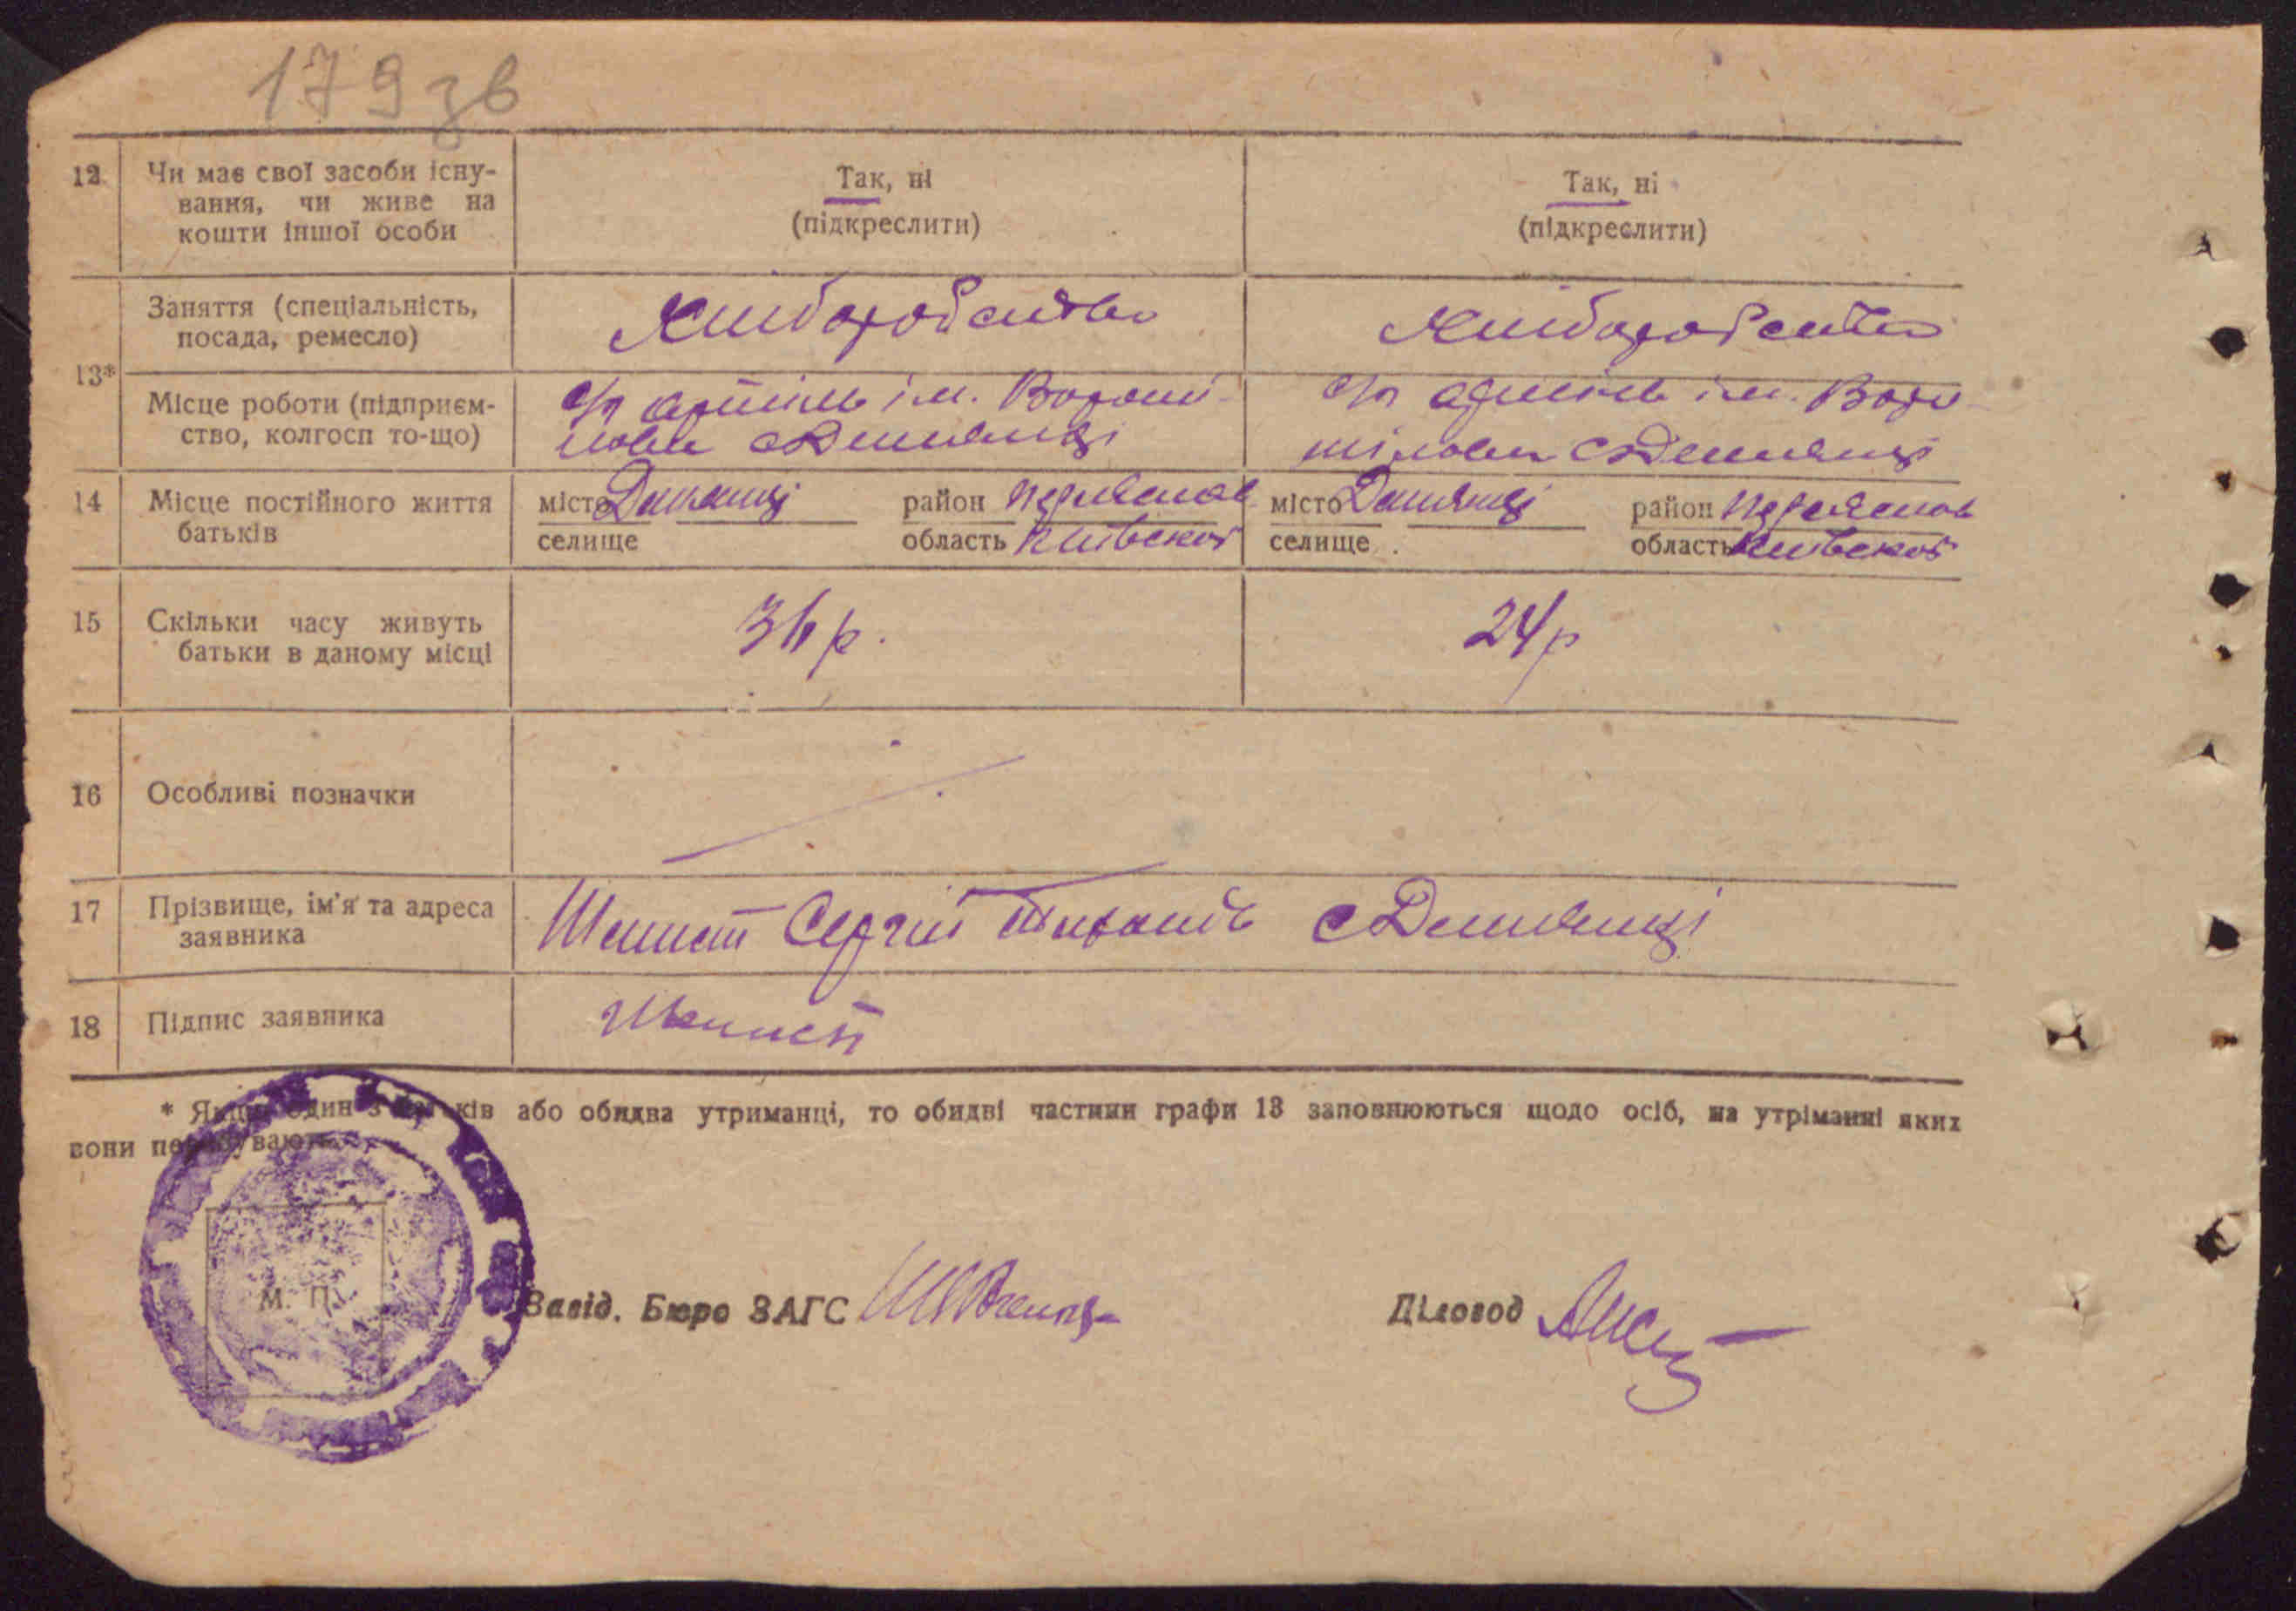 179 зв
12 Чи має свої засоби існу-
вання, чи живе на
кошти іншої особи
Так, ні
(підкреслити)
Так, ні
(підкреслити)
13*
Заняття (спеціальність,
посада, ремесло)
Хліборобство
Хліборобство
Місце роботи (підприєм-
ство, колгосп то-що)
с/г артіль ім. Вороши-
лова с Демянці
с/г артіль ім. Воро-
шилова с Демянці
14 Місце постійного життя
батьків
місто Демянці район Переяслав
селище область Київської
місто Демянці район Переяслав
селище область Київської
15 Скільки часу живуть
батьки в даному місці
24р
16 Особливі позначки
17 Прізвище, ім'я та адреса
заявника
Сергій с Демянці
18 Підпис заявника
* Якщо один з батьків або обидва утриманці, то обидві частини графи 13 заповнюються щодо осіб, на утріманні яких
вони перебувають.
М. П.
Завід. Бюро ЗАГС
Діловод